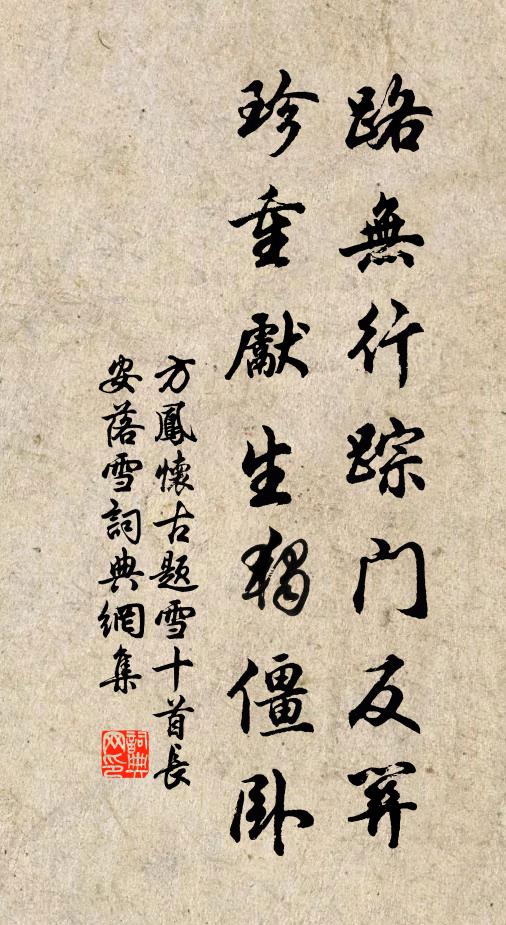 路無行踪门反關
珍重獻生獨僵卧
方鳳懷古題雪十首長
安落雪詞典網集
詞典网印